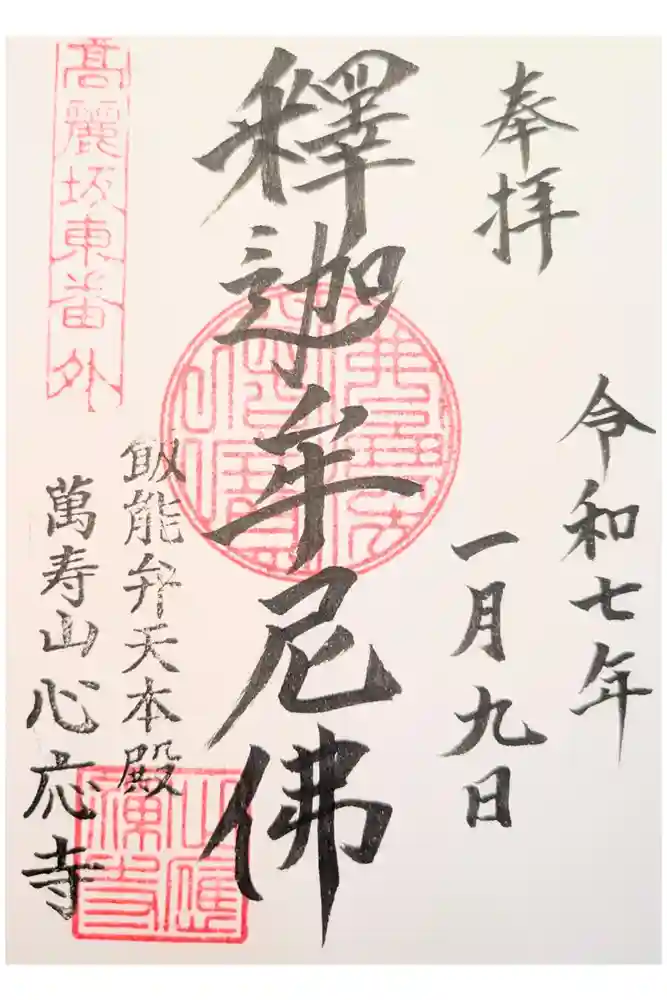 奉拝
令和七年
一月九日
釋迦牟尼佛
高麗坂東番外
飯能弁天本殿
萬寿山心応寺
心應禅寺